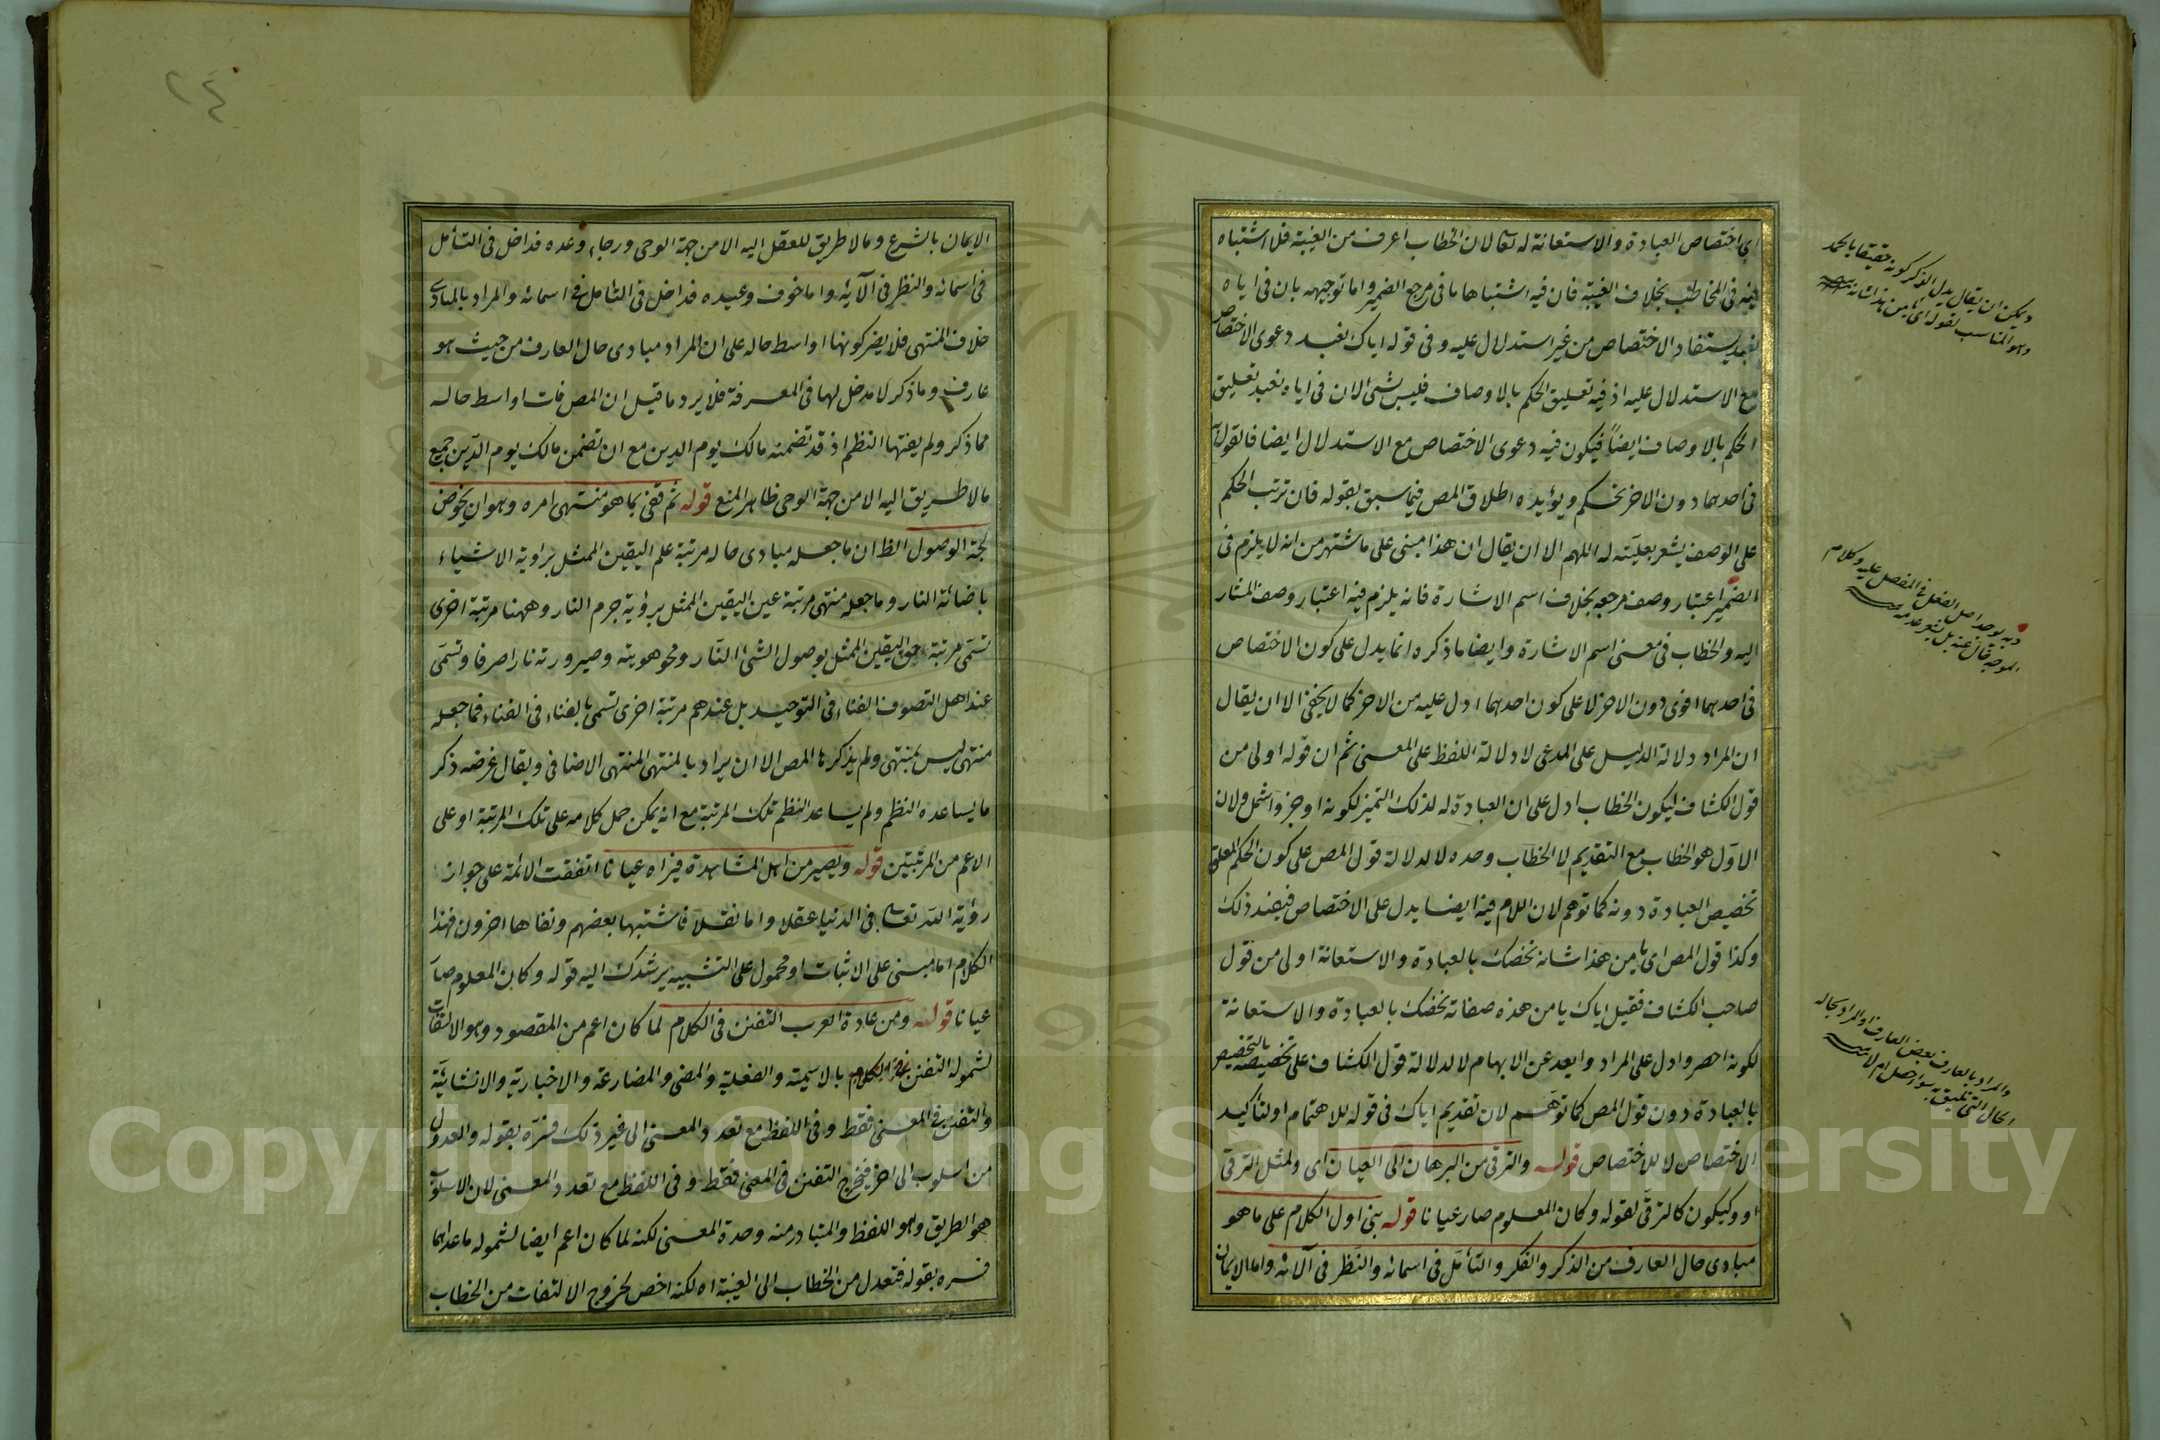 اى اختصاص العبادة والاستعانة له تعالى لان الخطاب اعرف من الغيبة فلا اشتباه
فيه فى المخاطب بخلاف الغيبة فان فيه اشتباها ما فى مرجع الضمير واما توجيهه بان فى اياه
نعبد يستفاد الاختصاص من غير استدلال عليه وفى قوله اياك نعبد دعوى الاختصاص
مع الاستدلال عليه اذ فيه تعليق الحكم بالاوصاف فليس بشئ الان فى اياه نعبد تعليق
الحكم بالاوصاف ايضا فيكون فيه دعوى الاختصاص مع الاستدلال ايضا فالقول
فى احدهما دون الاخر تحكم ويؤيده اطلاق المص فيما سبق بقوله فان ترتب الحكم
على الوصف يشعر بعليته له اللهم الا ان يقال ان هذا مبنى على ما اشتهر من انه لا يلزم فى
الضمير اعتبار وصف مرجعه بخلاف اسم الاشارة فانه يلزم فيه اعتبار وصف المشار
اليه والخطاب فى معنى اسم الاشارة وايضا ما ذكره انما يدل على كون الاختصاص
فى احدهما اقوى دون الاخر لا على كون احدهما ادل عليه من الاخر كما لا يخفى الا ان يقال
ان المراد دلالة الدليل على المدعى لا دلالة اللفظ على المعنى ثم ان قوله اولى من
قول الكشاف ليكون الخطاب ادل على ان العبادة له لذلك التميز لكونه اوجز واشمل ولان
الاول هو الخطاب مع التقديم لا الخطاب وحده لا لدلالة قول المص على كون الحكم المعلق
تخصيص العبادة دونه كما توهم لان اللام فيه ايضا يدل على الاختصاص فيفيد ذلك
وكذا قول المص اى يا من هذا شانه نخصك بالعبادة والاستعانة اولى من قول
صاحب الكشاف فقيل اياك يا من هذه صفاته نخصك بالعبادة والاستعانة
لكونه احصر وادل على المراد وابعد عن الابهام لا لدلالة قول الكشاف على تخصيصه بالتخصيص
بالعبادة دون قول المص كما توهم لان تقديم اياك فى قوله للاهتمام او لتأكيد
الاختصاص لا للاختصاص قوله والترقى من البرهان الى العيان اى ولمثل الترقى
او وليكون كالترقى لقوله وكان المعلوم صار عيانا قوله بنى اول الكلام على ما هو
مبادى حال العارف من الذكر والفكر والتأمل فى اسمائه والنظر فى آلائه واما الايمان
ويمكن ان يقال يدل الذكر كونه حقيقا بالحمد
وهو المناسب لقوله اى يا من هذا شانه
وبه يوجد اصل الفعل فى المفضل عليه وكلام
والمراد بالعارف بعض العارف والمراد بحاله
٢٤
الايمان بالشرع وما لا طريق للعقل اليه الا من جهة الوحى ورجاء وعده فداخل فى التأمل
فى اسمائه والنظر فى آلائه واما خوف وعيده فداخل فى التأمل فى اسمائه والمراد بالمبادى
خلاف المنتهى فلا يضر كونها اواسط حاله على ان المراد مبادى حال العارف من حيث هو
عارف وما ذكر لا مدخل لها فى المعرفة فلا يرد ما قيل ان المص فات اواسط حاله
مما ذكر ولم يفتها النظم اذ قد تضمنه مالك يوم الدين مع ان تضمن مالك يوم الدين جميع
ما لا طريق اليه الا من جهة الوحى ظاهر المنع قوله ثم قفى بما هو منتهى امره وهو ان يخوض
لجة الوصول الظ ان ما جعله مبادى حاله مرتبة علم اليقين الممثل برؤية الاشياء
باضائة النار وما جعله منتهى مرتبة عين اليقين الممثل برؤية جرم النار وههنا مرتبة اخرى
تسمى مرتبة حق اليقين الممثل بوصول الشئ النار ومحو هويته وصيرورته نارا صرفا وتسمى
عند اهل التصوف الفناء فى التوحيد بل عندهم مرتبة اخرى تسمى بالفناء فى الفناء فما جعله
منتهى ليس بمنتهى ولم يذكرها المص الا ان يراد بالمنتهى المنتهى الاضافى ويقال غرضه ذكر
ما يساعده النظم ولم يساعد النظم تلك المرتبة مع انه يمكن حمل كلامه على تلك المرتبة او على
الاعم من المرتبتين قوله ويصير من اهل المشاهدة فيراه عيانا اتفقت الائمة على جواز
رؤية الله تعالى فى الدنيا عقلا واما نقلا فاشتبها بعضهم ونفاها اخرون فهذا
الكلام اما مبنى على الاثبات او محمول على التشبيه يرشدك اليه قوله وكان المعلوم صار
عيانا قوله ومن عادة العرب التفنن فى الكلام لما كان اعم من المقصود وهو الالتفات
لشموله التفنن بالاسمية والفعلية والمضى والمضارعة والاخبارية والانشائية
والتفنن فى المعنى فقط وفى اللفظ مع تعدد المعنى الى غير ذلك فسره بقوله والعدول
من اسلوب الى اخر فيخرج التفنن فى المعنى فقط وفى اللفظ مع تعدد المعنى لان الاسلوب
هو الطريق وهو اللفظ والمتبادر منه وحدة المعنى لكنه لما كان اعم ايضا لشموله ما عداهما
فسره بقوله فتعدل من الخطاب الى الغيبة اه لكنه اخص لخروج الالتفات من الخطاب